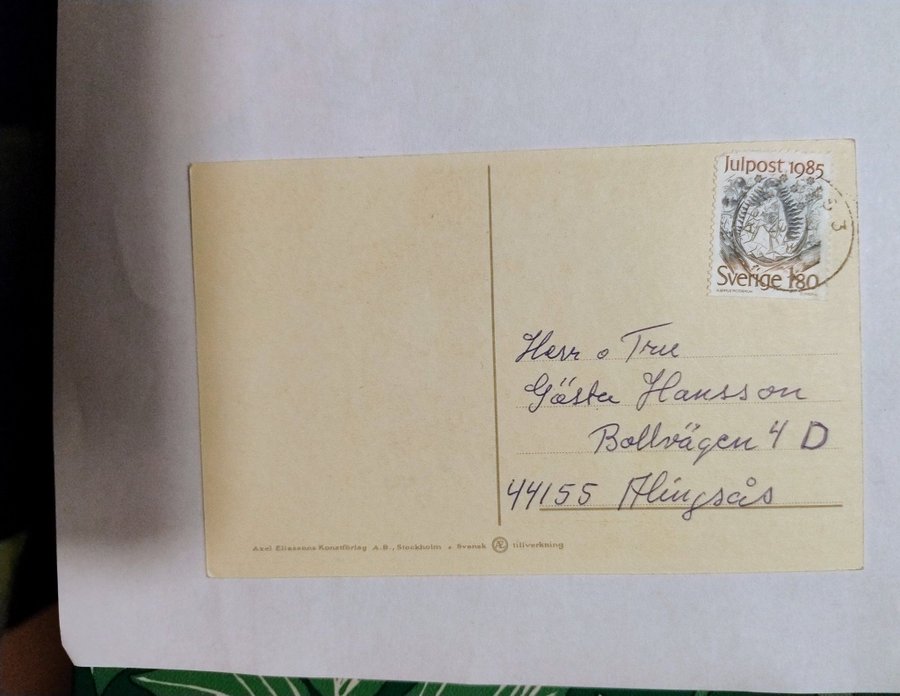 Julpost 1985
Sverige 1.80
3
Herr o Fru
Gösta Hansson
Bollvägen 4 D
44155 Alingsås
Axel Eliassons Konstförlag A.B., Stockholm • Svensk Æ tillverkning